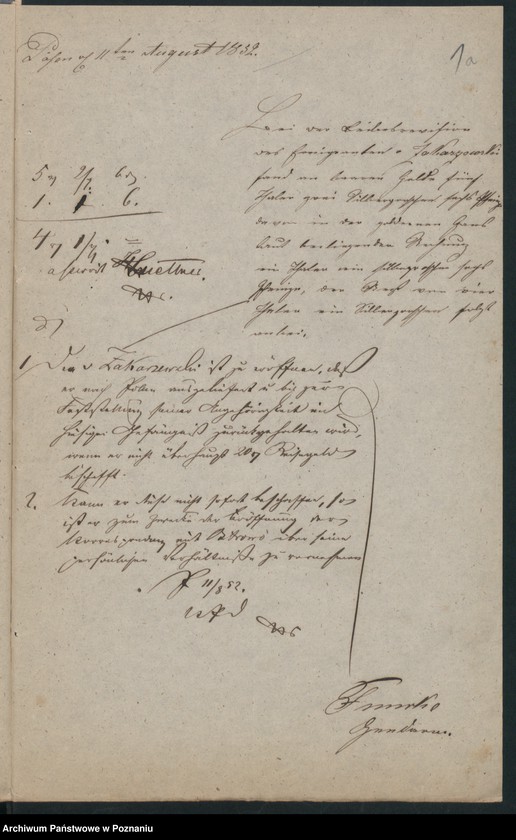 Posen d 11ten August 1852.
1a
Bei der Leibesrevision
des Emigranten v Zakarzewski
fand an baarem Gelde fünf
Thaler zwei Silbergroschen sechs Pfennige
davon in der goldenen Gans
laut beiliegender Rechnung
ein Thaler ein Silbergroschen sechs
Pfennige, der Rest von vier
Thaler ein Silbergroschen folgt
anbei.
5 2/ 6
1. 1 6.
4 1/
1, Dem v Zakarzewski ist zu eröffnen, daß
er nach Polen ausgeliefert u bis zur
Feststellung seiner Angehörigkeit im
hiesigen Gefängniß zurückgehalten wird,
wenn er nicht überhaupt 20 Reisegeld
beschafft.
2. Kann er diese nicht sofort beschaffen, so
ist er zum Zwecke der Eröffnung der
Korrespondenz mit über seine
persönlichen Verhältnisse zu vernehmen
P 11/8 52.
Gendarm.
Archiwum Państwowe w Poznaniu